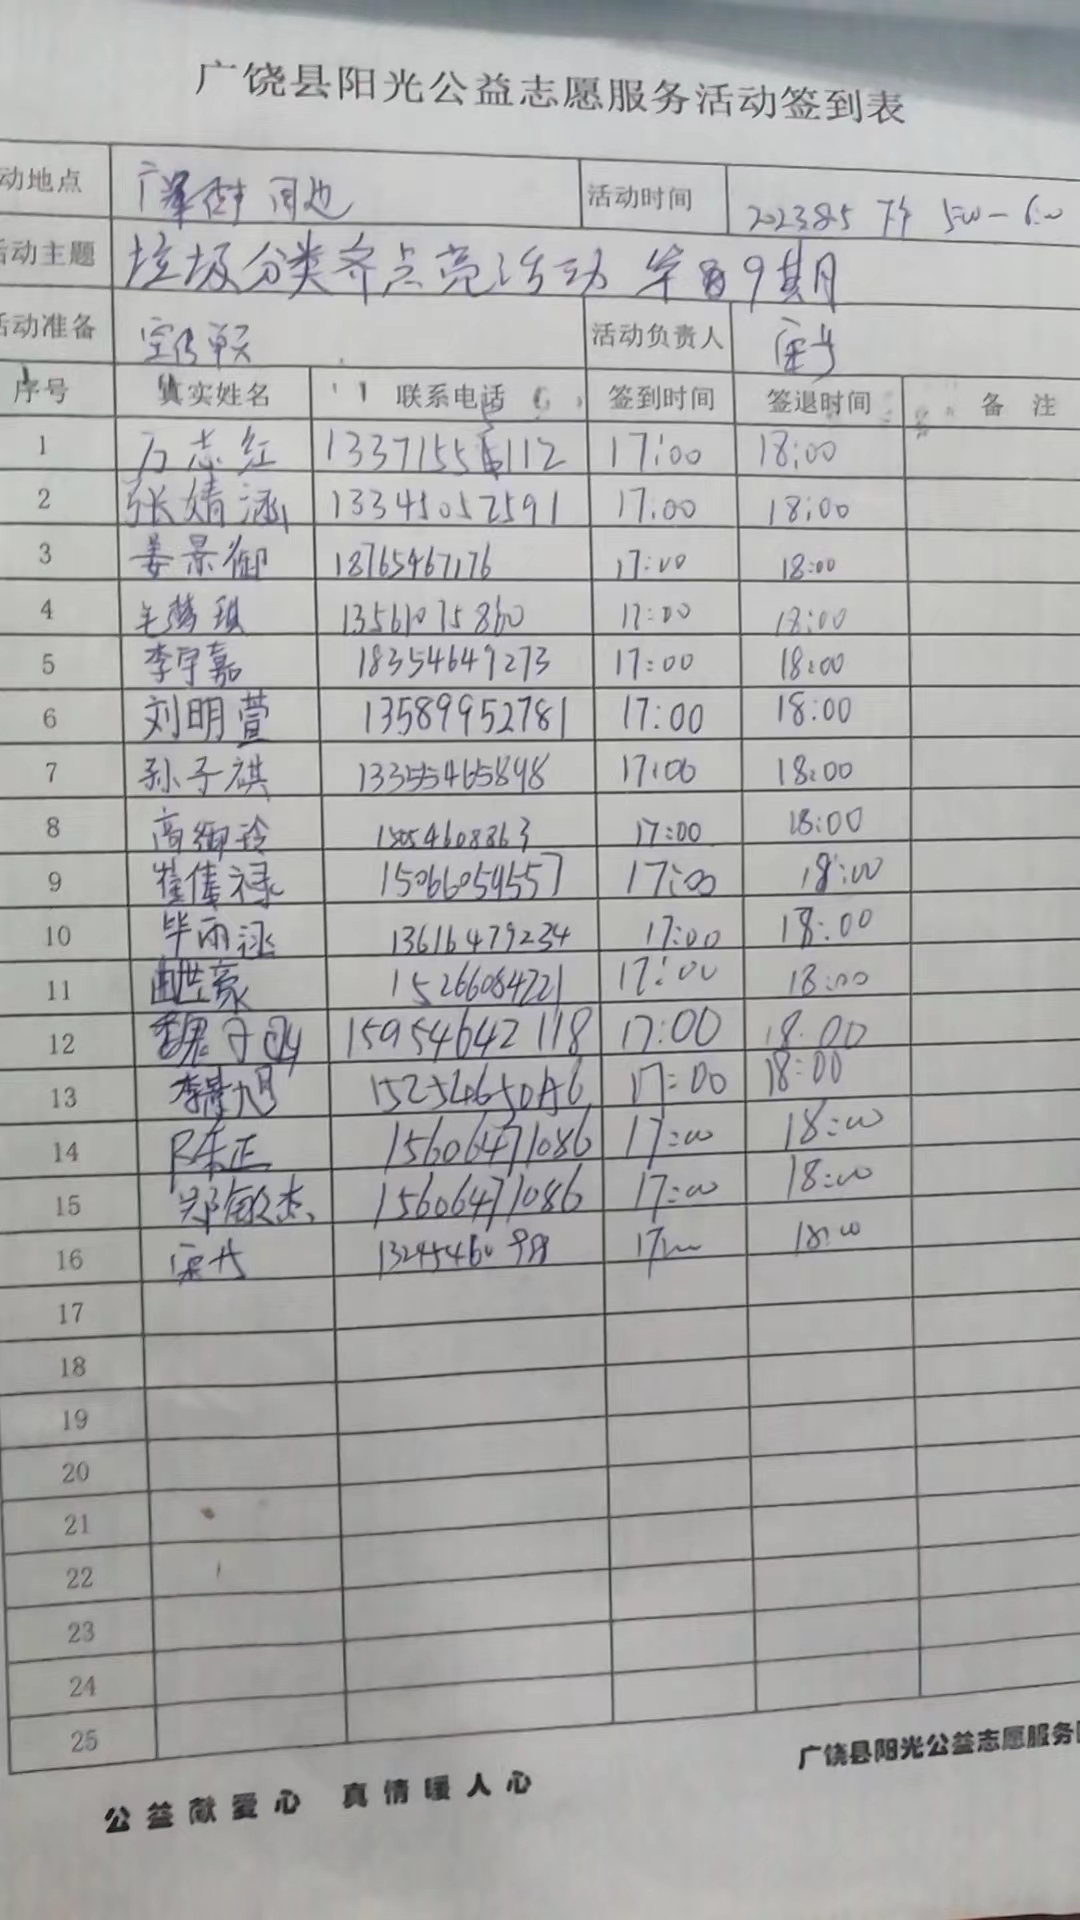 广饶县阳光公益志愿服务活动签到表
动地点 周边 活动时间 2023.8.5 下午 5:00-6:00
活动主题 垃圾分类齐点亮活动 第 9期
活动准备 宣传单页 活动负责人
序号 真实姓名 联系电话 签到时间 签退时间 备 注
1 万志红 17:00 18:00
2 张婧涵 13345052591 17:00 18:00
3 姜景御 18765467176 17:00 18:00
4 毛梦琪 13561075860 17:00 18:00
5 李宇嘉 18354649273 17:00 18:00
6 刘明萱 13589952781 17:00 18:00
7 孙子祺 17:00 18:00
8 高御玲 15054608363 17:00 18:00
9 15066059557 17:00 18:00
10 毕雨涵 13616479234 17:00 18:00
11 曲世豪 15266084721 17:00 18:00
12 魏子 15954642118 17:00 18:00
13 李景旭 17:00 18:00
14 15606471086 17:00 18:00
15 郑敏杰 15606471086 17:00 18:00
16 17:00 18:00
17
18
19
20
21
22
23
24
25
广饶县阳光公益志愿服务
公益献爱心 真情暖人心